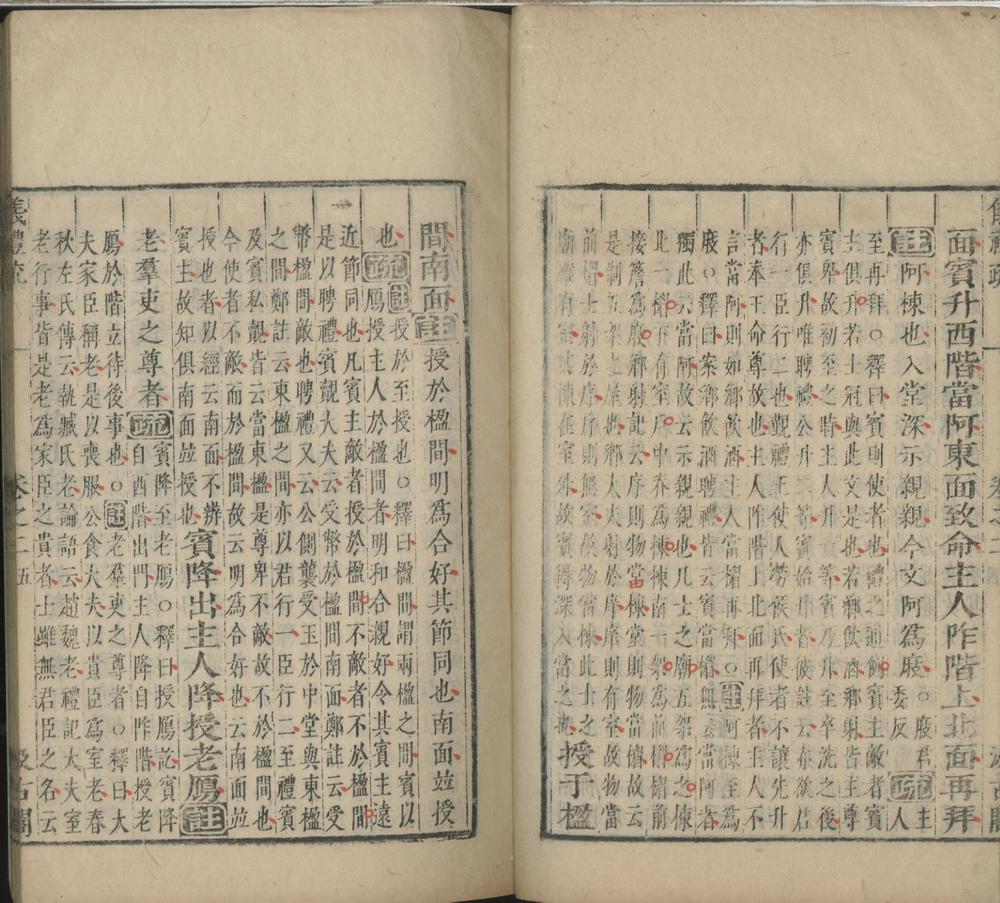 面賓升西階當阿東面致命主人阼階上北面再拜
註阿棟也入堂深示親親今文阿為庪○庪君委反疏主人
至再拜○釋曰賓則使者也禮之通例賓主敵者賓
主俱升若士冠與此文是也若鄉飲酒鄉射皆主尊
賓卑故初至之時主人升一等賓乃升至卒洗之後
亦俱升唯聘禮公升二等賓始升者彼註云亦欲君
行一臣行二也覲禮王使人勞侯氏使者不讓先升
者奉王命尊故也主人阼階上北面再拜者主人不
言當阿則如鄉飲酒主人當楣再拜○註阿棟至為
庪○釋曰案鄉飲酒聘禮皆云賓當楣無云當阿者
獨此云當阿故云示親親也凡士之廟五架為之棟
北一楣下有室戶中脊為棟棟南一架為前楣楣前
接簷為庪鄉射記云序則物當棟堂則物當楣故云
是制五架之屋也鄉大夫射於庠庠則有室故物當
前楣士射於序序則無室故物當棟此士之
廟雖有室其棟在室外故賓得深入當之也授于楹
間南面註授於楹間明為合好其節同也南面並授
也疏註授於至授也○釋曰楹間謂兩楹之間賓以
鴈授主人於楹間者明和合親好令其賓主遠
近節同也凡賓主敵者授於楹間不敵者不於楹間
是以聘禮賓覿大夫云受幣於楹間南面鄭註云受
幣楹間敵也聘禮又云公側襲受玉於中堂與東楹
之間鄭註云東楹之間亦以君行一臣行二至禮賓
及賓私覿皆云當東楹是尊卑不敵故不於楹間也
今使者不敵而於楹間故云明為合好也云南面並
授也者以經云南面不辨
賓主故知俱南面並授也賓降出主人降授老鴈註
老羣吏之尊者疏賓降至老鴈○釋曰授鴈訖賓降
自西階出門主人降自阼階授老
鴈於階立待後事也○註老羣吏之尊者○釋曰大
夫家臣稱老是以喪服公食大夫以貴臣為室老春
秋左氏傳云執臧氏老論語云趙魏老禮記大夫室
老行事皆是老為家臣之貴者士雖無君臣之名云
儀禮疏 卷之二 五 汲古閣